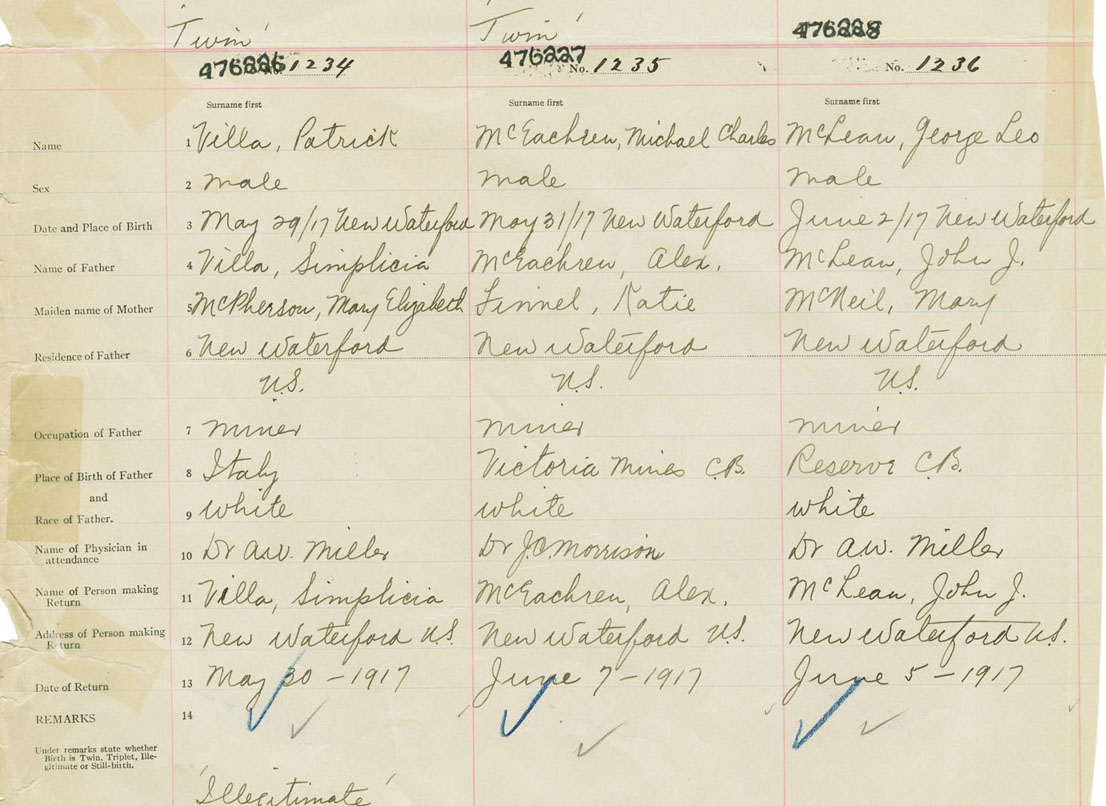 'Twin' 'Twin' 476228
476226 No. 1234 476227 No. 1235 No. 1236
Surname first Surname first Surname first
Name 1 Villa, Patrick McEachren, Michael Charles McLean, George Leo
Sex 2 male male male
Date and Place of Birth 3 May 29/17 New Waterford May 31/17 New Waterford June 2/17 New Waterford
Name of Father 4 Villa, Simplicia McEachren, Alex. McLean, John J.
Maiden name of Mother 5 McPherson, Mary Elizabeth Finnel, Katie McNeil, Mary
Residence of Father 6 New Waterford New Waterford New Waterford
N.S. N.S. N.S.
Occupation of Father 7 miner miner miner
Place of Birth of Father 8 Italy Victoria Mines C.B. Reserve C.B.
and
Race of Father. 9 white white white
Name of Physician in
attendance 10 Dr A.W. Miller Dr J.C. Morrison Dr A.W. Miller
Name of Person making
Return 11 Villa, Simplicia McEachren, Alex. McLean, John J.
Address of Person making
Return 12 New Waterford N.S. New Waterford N.S. New Waterford N.S.
Date of Return 13 May 30 - 1917 June 7 - 1917 June 5 - 1917
REMARKS 14
Under remarks state whether
Birth is Twin, Triplet, Ille-
gitimate or Still-birth.
'Illegitimate'